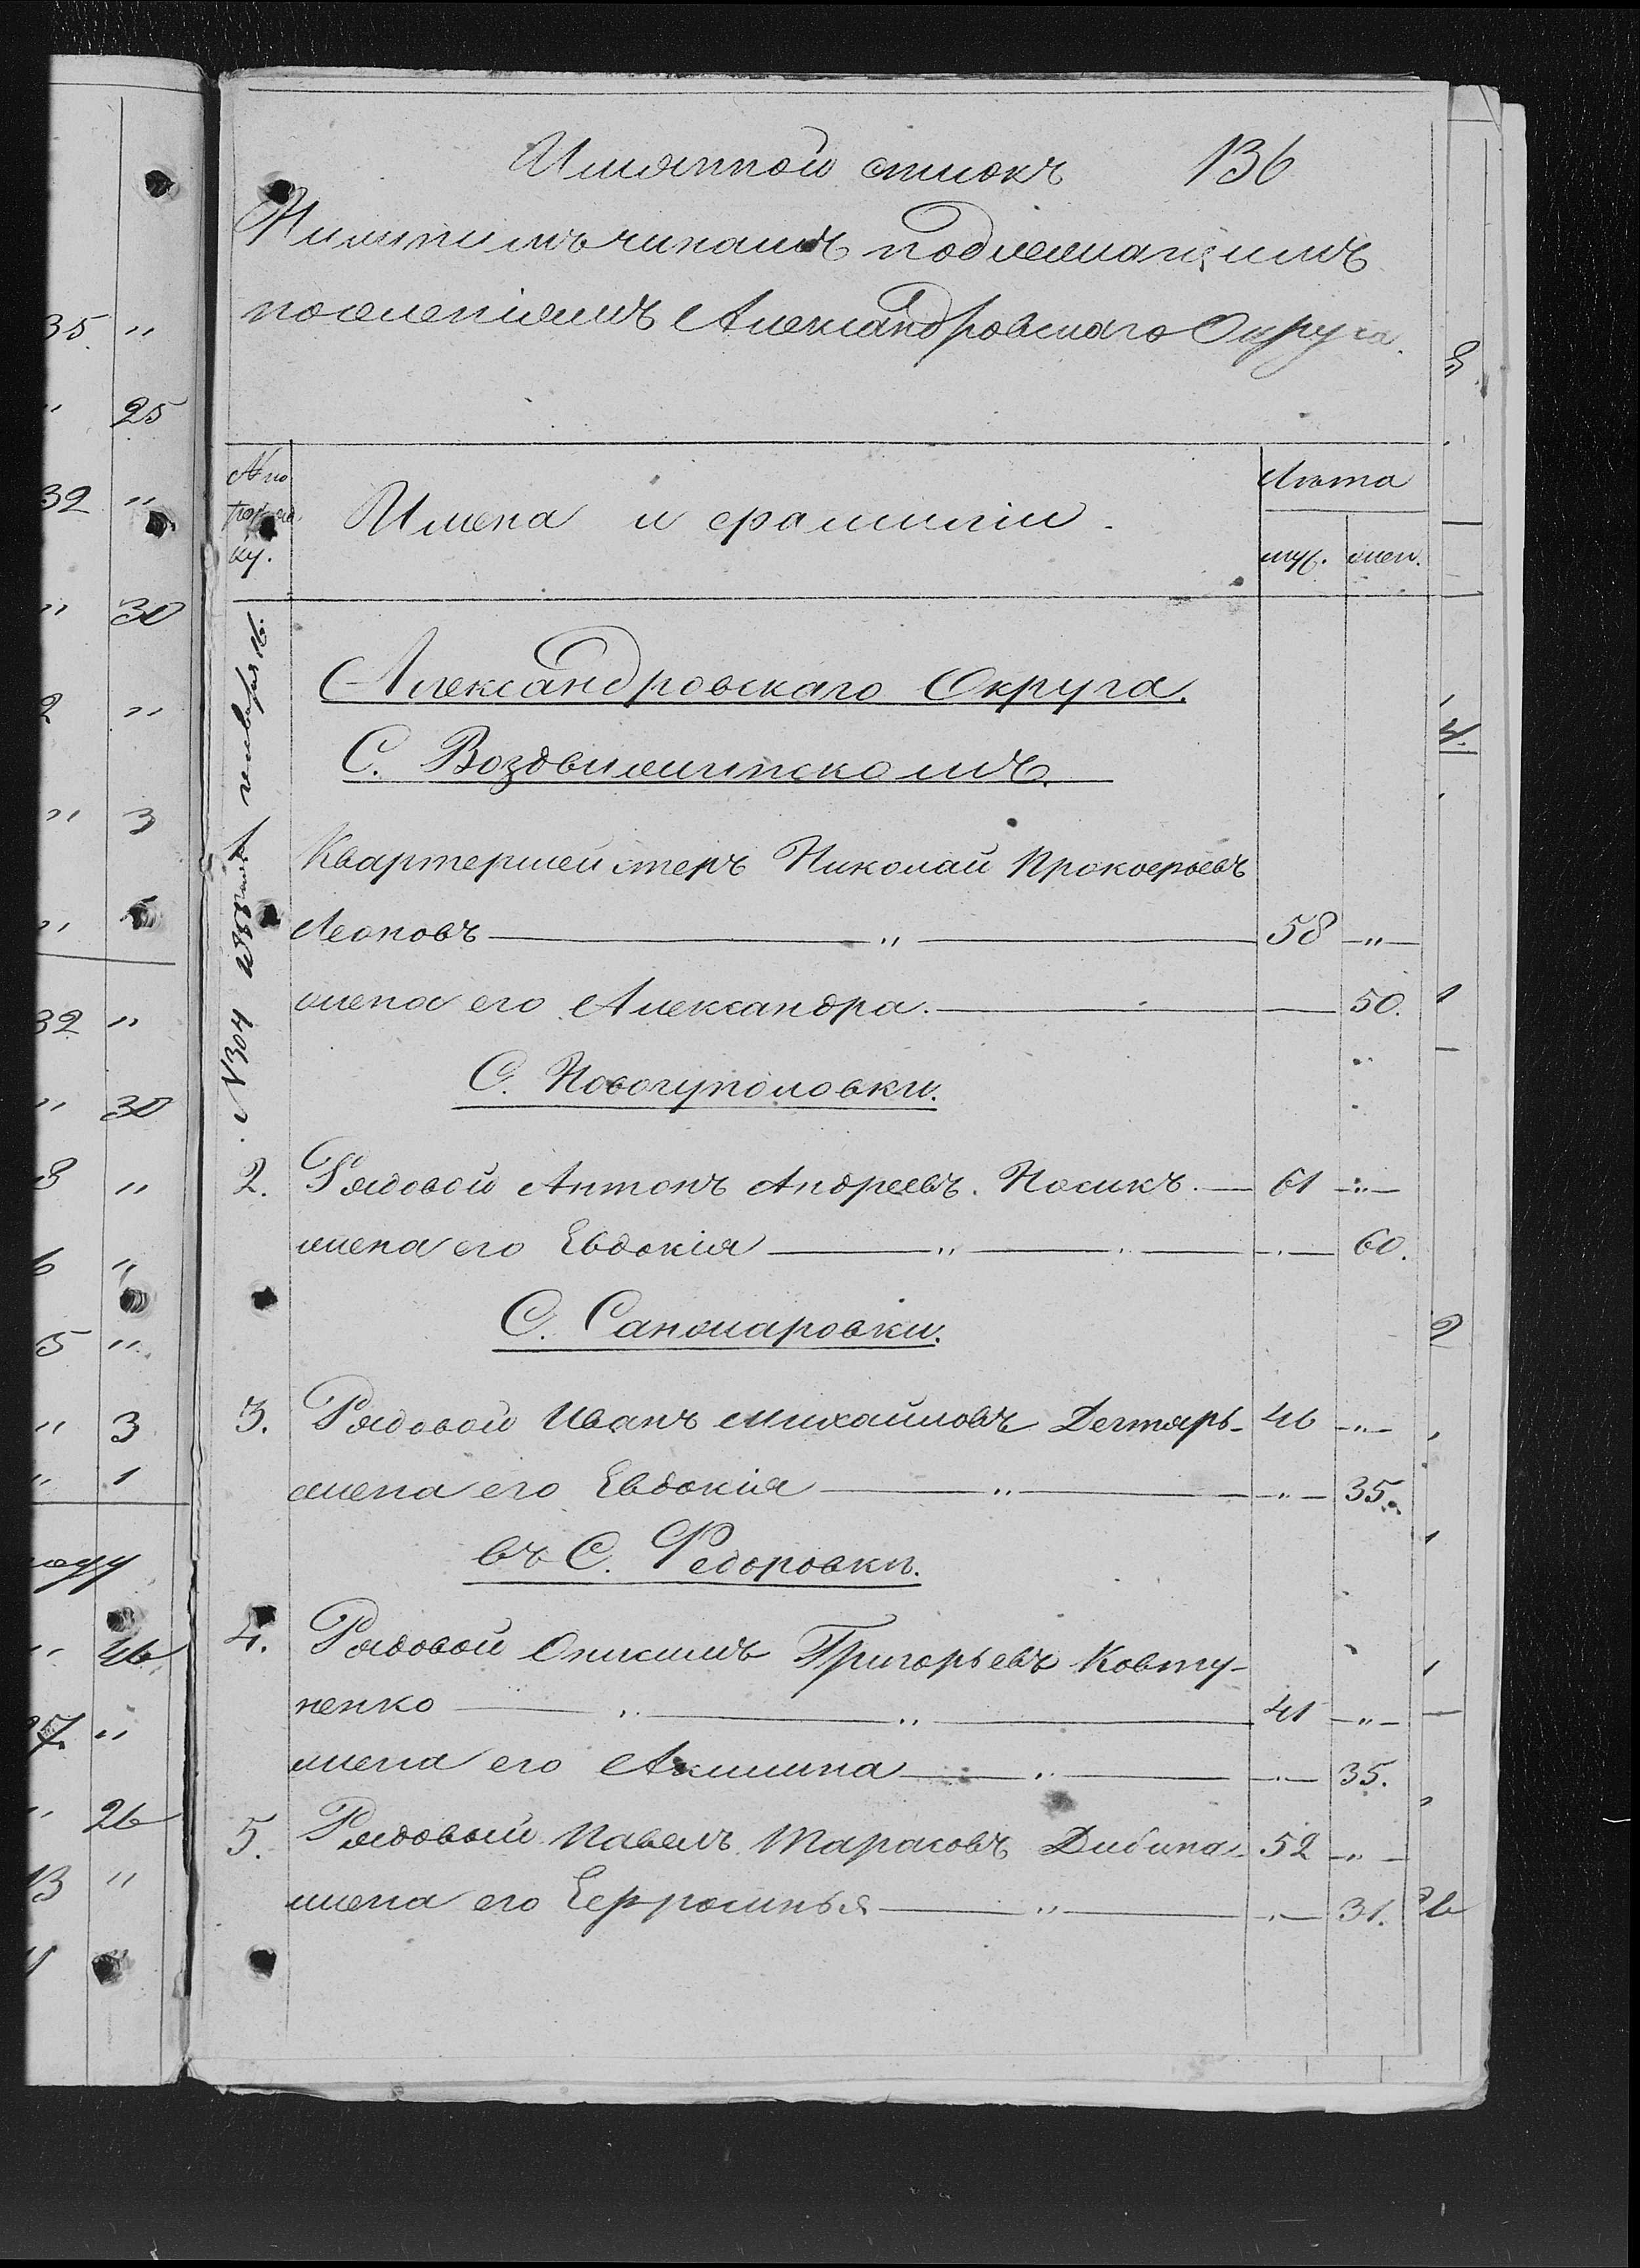 Имянной списокъ 136
Нижнимъ чинамъ подлежащимъ
поселеніямъ Александровскаго Округа.
№ по
поряд
ку.
Имена и фамиліи.
Лѣта
муж. жен.
Александровскаго Округа.
С. Воздвиженскомъ.
№ 304 1858 января 16.
Квартермейстеръ Николай Прокофьевъ
Леоновъ — " — 58 — " —
жена его Александра. — 50.
С. Новогуполовки.
2. Рядовой Антонъ Андреевъ Носикъ. — 61 — " —
жена его Евдокія — " — " — 60.
С. Санжаровки.
3. Рядовой Иванъ Михайловъ Дегтярь — 46 — " —
жена его Евдокія — " — " — 35.
въ С. Федоровки.
4. Рядовой Онисимъ Григорьевъ Ковту-
ненко — " — " — 41 — " —
жена его Акилина — " — " — 35.
5. Рядовый Павелъ Тарасовъ Дибина 52 — " —
жена его Ефросинья — " — " — 31.
35. "
" 25
32 "
" 30
2 "
" 3
32 "
" 30
3 "
6 "
5 "
" 3
" 1
" 46
27. "
" 26
13 "